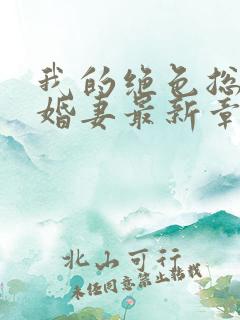 我的绝色总
婚妻最新章
北山可行
未经同意禁止转载